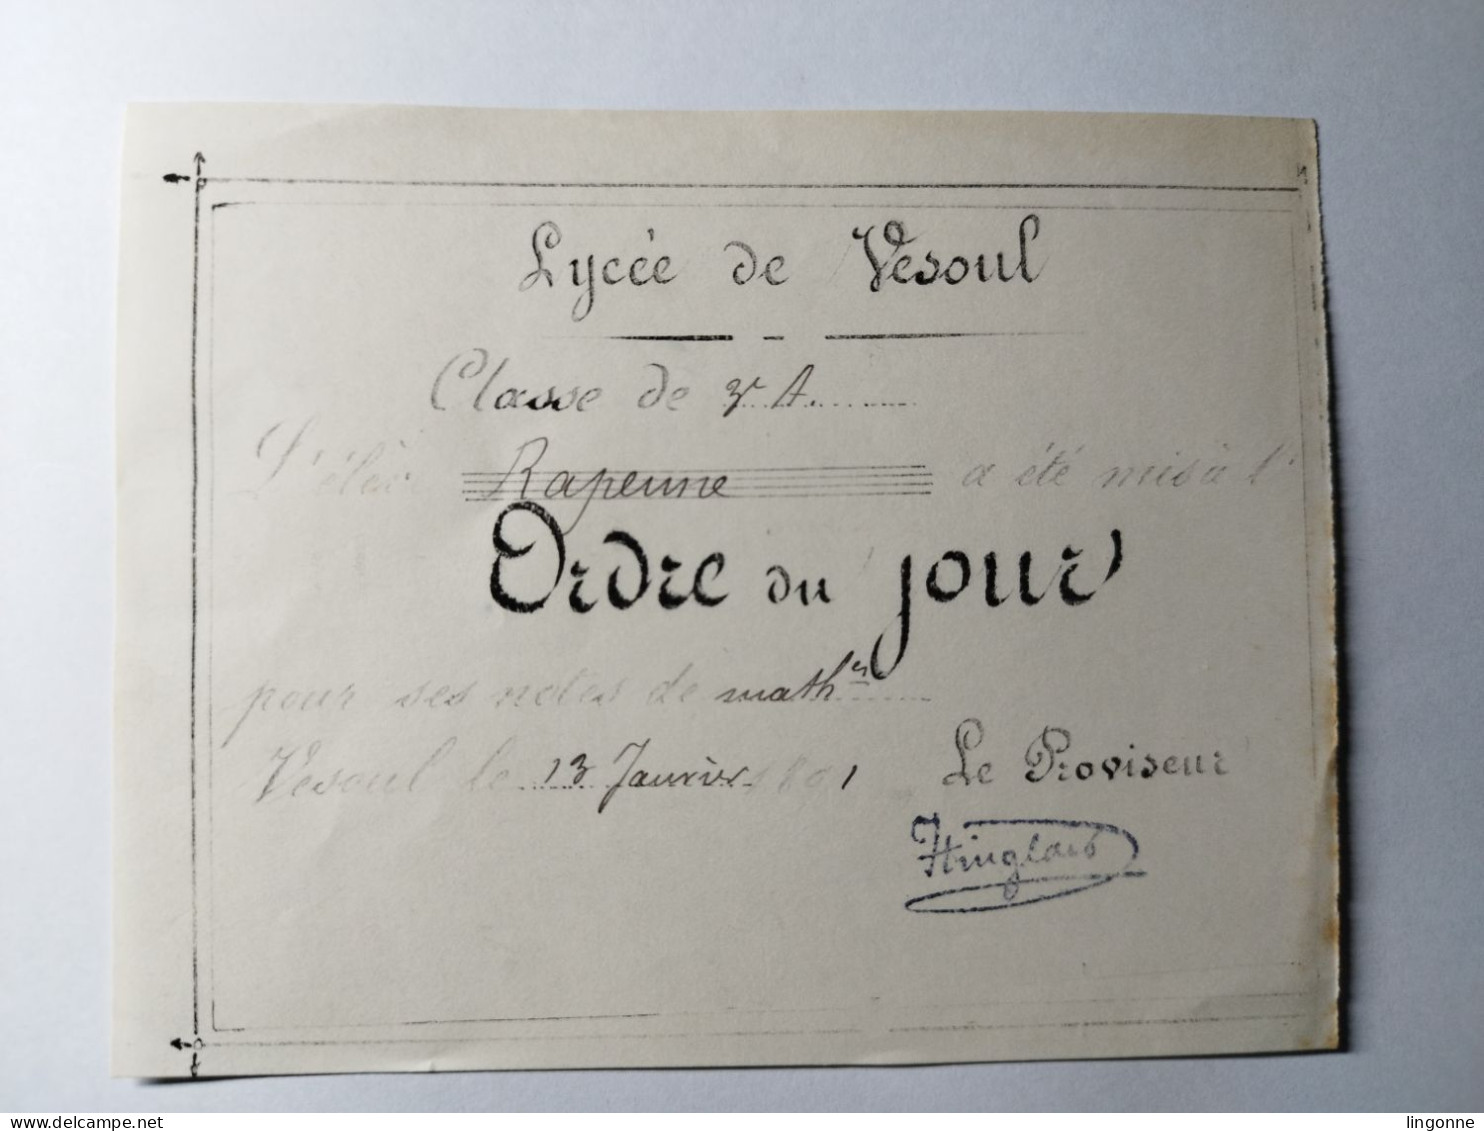 Lycée de Vesoul
Classe de 3e A.
L'élève Rapenne a été mis à l'
Ordre du jour
pour ses notes de mathes
Vesoul le 13 Janvier
Le Proviseur
Hinglais
www.delcampe.net
lingonne